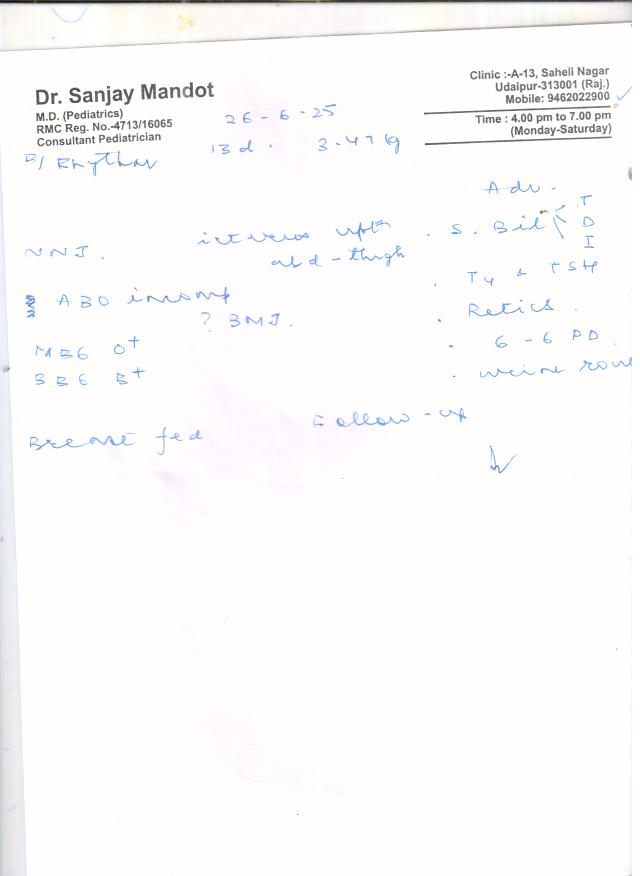 Dr. Sanjay Mandot
M.D. (Pediatrics)
RMC Reg. No.-4713/16065
Consultant Pediatrician
Clinic :-A-13, Saheli Nagar
Udaipur-313001 (Raj.)
Mobile: 9462022900
Time : 4.00 pm to 7.00 pm
(Monday-Saturday)
26-6-25
B/ Rhythm
13d. 3.47 kg
Adv.
NNJ.
icterus upto
abd-thigh
. S. Bil T
D
I
. T4 & TSH
ABO incomp
? BMJ.
. Retics.
MBG O+
. G-6 PD
BBG B+
. urine rou
Breast fed
Follow-up